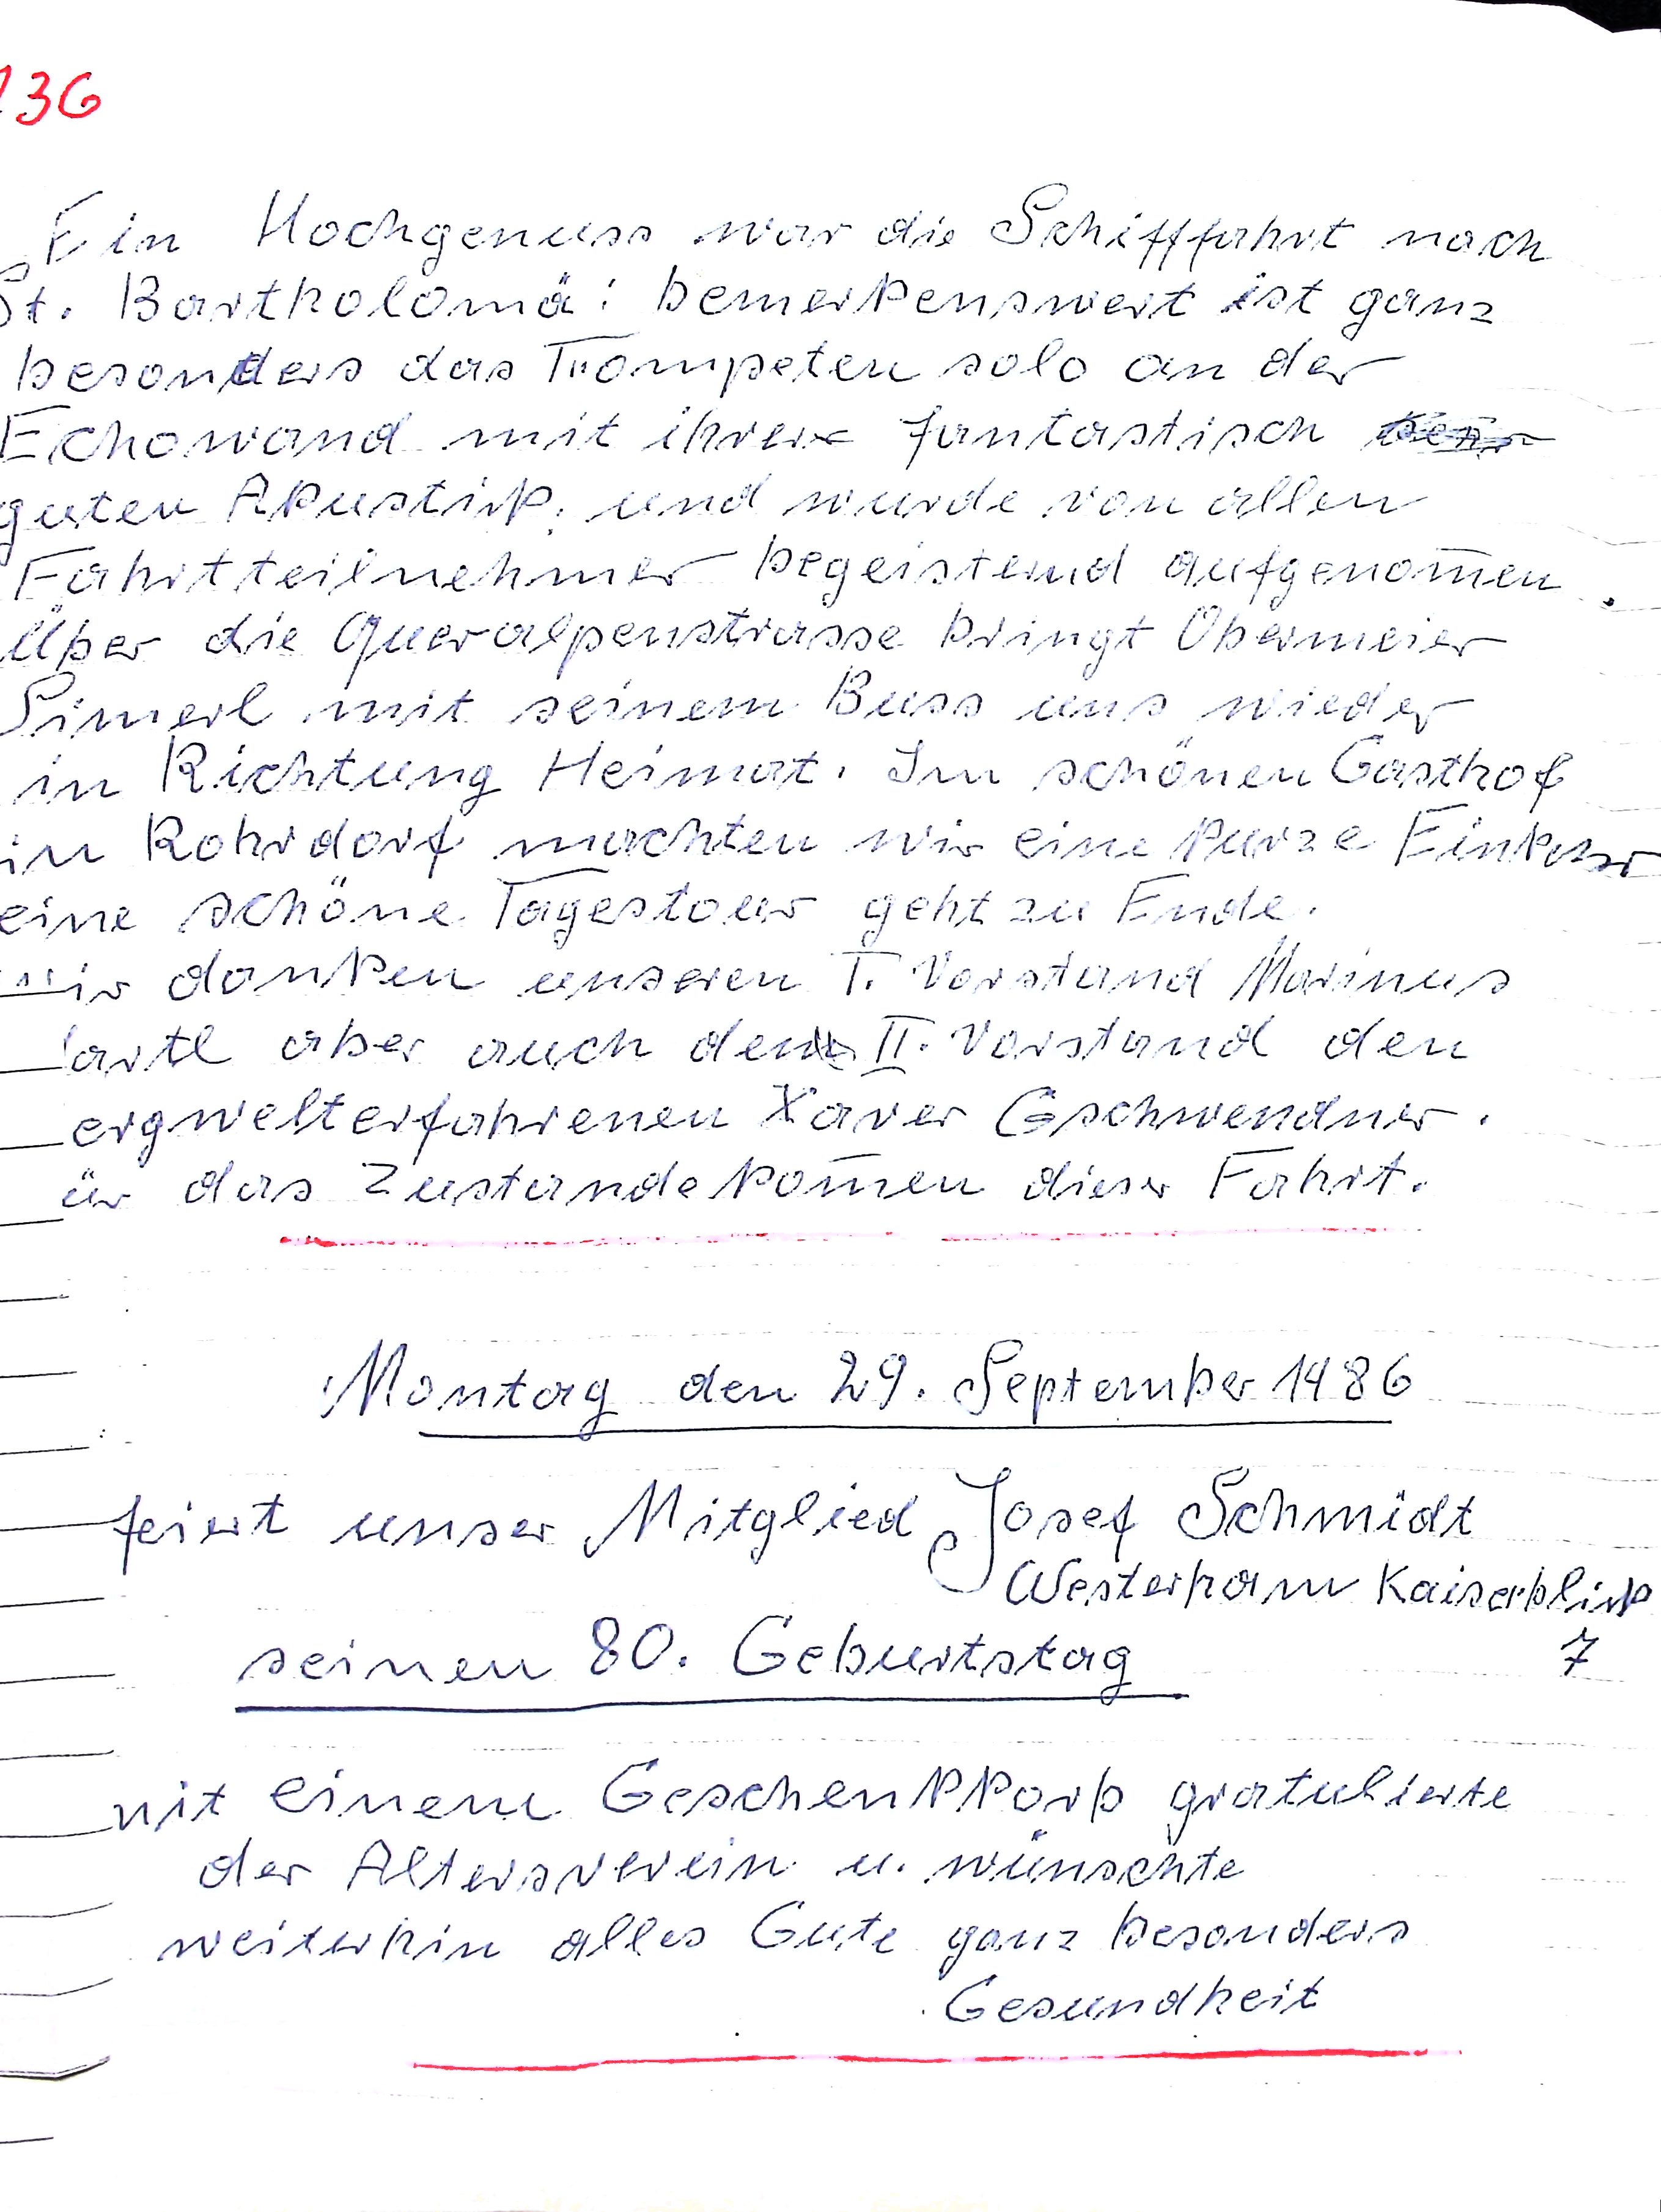 136
Ein Hochgenuss war die Schifffahrt nach
St. Bartholomä: bemerkenswert ist ganz
besonders das Trompeten solo an der
Echowand mit ihrer fantastisch
guten Akustik, und wurde von allen
Fahrtteilnehmer begeisternd aufgenom̄en.
Über die Queralpenstrasse bringt Obermeier
Simerl mit seinem Buss uns wieder
in Richtung Heimat. Im schönen Gasthof
in Rohrdorf machten wir eine kurze Einkehr
eine schöne Tagestour geht zu Ende.
ir danken unseren I. Vorstand Marinus
artl aber auch den II. Vorstand den
ergwelterfahrenen Xaver Gschwendner.
ür das Zustandekom̄en dieser Fahrt.
Montag den 29. September 1986
feiert unser Mitglied Josef Schmidt
Westerham Kaiserblick
7
seinen 80. Geburtstag
mit einem Geschenkkorb gratulierte
der Altersverein u. wünschte
weiterhin alles Gute ganz besonders
Gesundheit